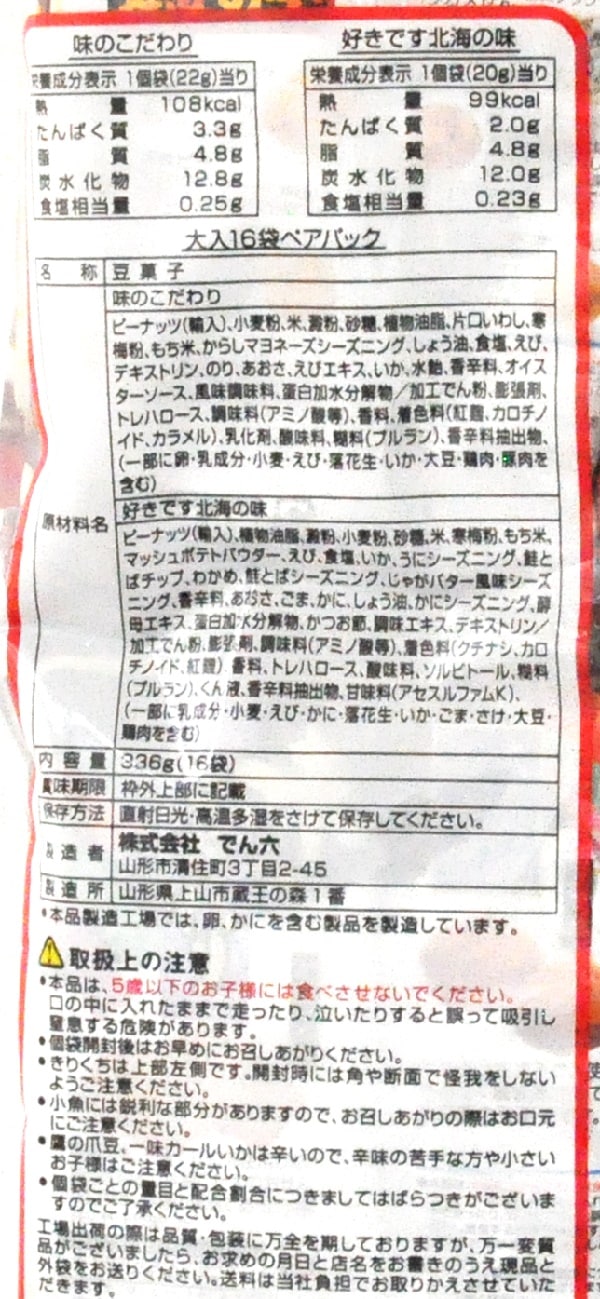 味のこだわり
栄養成分表示 1個袋(22g)当り
熱量 108kcal
たんぱく質 3.3g
脂質 4.8g
炭水化物 12.8g
食塩相当量 0.25g
好きです北海の味
栄養成分表示 1個袋(20g)当り
熱量 99kcal
たんぱく質 2.0g
脂質 4.8g
炭水化物 12.0g
食塩相当量 0.23g
大入16袋ペアパック
名称 豆菓子
原材料名
味のこだわり
ピーナッツ(輸入)、小麦粉、米、澱粉、砂糖、植物油脂、片口いわし、寒
梅粉、もち米、からしマヨネーズシーズニング、しょう油、食塩、えび、
デキストリン、のり、あおさ、えびエキス、いか、水飴、香辛料、オイス
ターソース、風味調味料、蛋白加水分解物/加工でん粉、膨張剤、
トレハロース、調味料(アミノ酸等)、香料、着色料(紅麹、カロチノ
イド、カラメル)、乳化剤、酸味料、糊料(プルラン)、香辛料抽出物、
(一部に卵・乳成分・小麦・えび・落花生・いか・大豆・鶏肉・豚肉を
含む)
好きです北海の味
ピーナッツ(輸入)、植物油脂、澱粉、小麦粉、砂糖、米、寒梅粉、もち米、
マッシュポテトパウダー、えび、食塩、いか、うにシーズニング、鮭と
ばチップ、わかめ、鮭とばシーズニング、じゃがバター風味シーズ
ニング、香辛料、あおさ、ごま、かに、しょう油、かにシーズニング、酵
母エキス、蛋白加水分解物、かつお節、調味エキス、デキストリン/
加工でん粉、膨張剤、調味料(アミノ酸等)、着色料(クチナシ、カロ
チノイド、紅麹)香料、トレハロース、酸味料、ソルビトール、糊料
(プルラン)、くん液、香辛料抽出物、甘味料(アセスルファムK)、
(一部に乳成分・小麦・えび・かに・落花生・いか・ごま・さけ・大豆・
鶏肉を含む)
内容量 336g(16袋)
賞味期限 枠外上部に記載
保存方法 直射日光・高温多湿をさけて保存してください。
製造者 株式会社 でん六
山形市清住町3丁目2-45
製造所 山形県上山市蔵王の森1番
*本品製造工場では、卵、かにを含む製品を製造しています。
取扱上の注意
•本品は、5歳以下のお子様には食べさせないでください。
口の中に入れたままで走ったり、泣いたりすると誤って吸引し
窒息する危険があります。
•個袋開封後はお早めにお召しあがりください。
•きりくちは上部左側です。開封時には角や断面で怪我をしない
ようご注意ください。
•小魚には鋭利な部分がありますので、お召しあがりの際はお口元
にご注意ください。
•鷹の爪豆、一味カールいかは辛いので、辛味の苦手な方や小さい
お子様はご注意ください。
•個袋ごとの量目と配合割合につきましてはばらつきがございま
すのでご了承ください。
工場出荷の際は品質・包装に万全を期しておりますが、万一変質
品がございましたら、お求めの月日と店名をお書きのうえ現品と
外袋をお送りください。送料は当社負担でお取りかえさせていた
だきます。